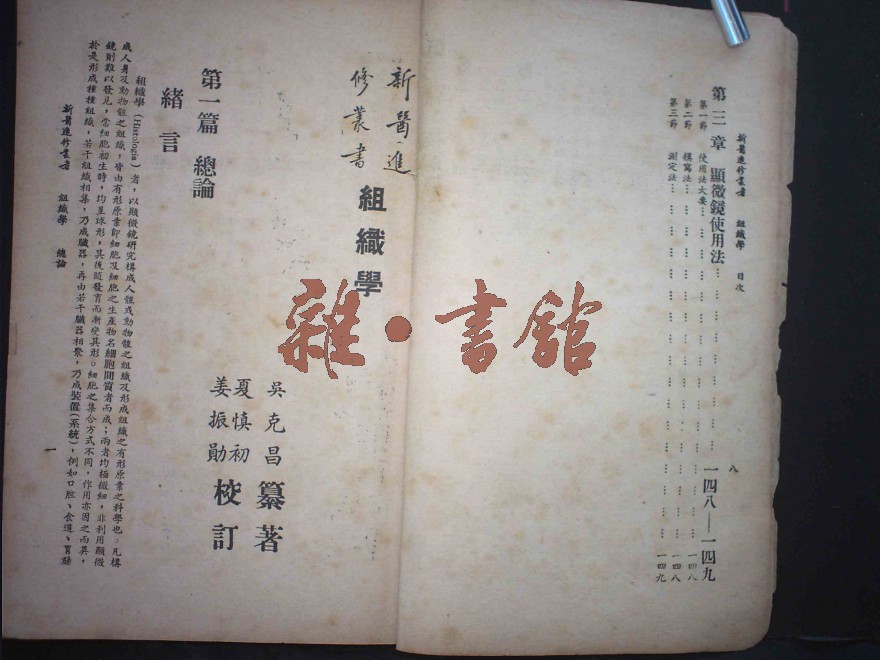 新醫進修叢書　組織學　目次
第三章　顯微鏡使用法……一四八—一四九
第一節　使用法大要……一四八
第二節　模寫法……一四八
第三節　測定法……一四九
八
新醫進
修叢書
組織學
吳克昌　纂著
夏慎初
姜振勛　校訂
第一篇　總論
緒言
組織學（Histologia）者，以顯微鏡研究構成人體或動物體之組織及形成組織之有形原素之科學也。凡構
成人身及動物體之組織，皆由有形原素即細胞及細胞之生產物名細胞間質者而成；兩者均極微細，非利用顯微
鏡則難以發見，當細胞初生時，均呈球形，其後隨發育而漸變其形。細胞之集合方式不同，作用亦因之而異，
於是形成種種組織，若干組織相集，乃成臟器，再由若干臟器相聚，乃成裝置（系統），例如口腔、食道、胃腸
新醫進修叢書　組織學　總論
一
雜·書館